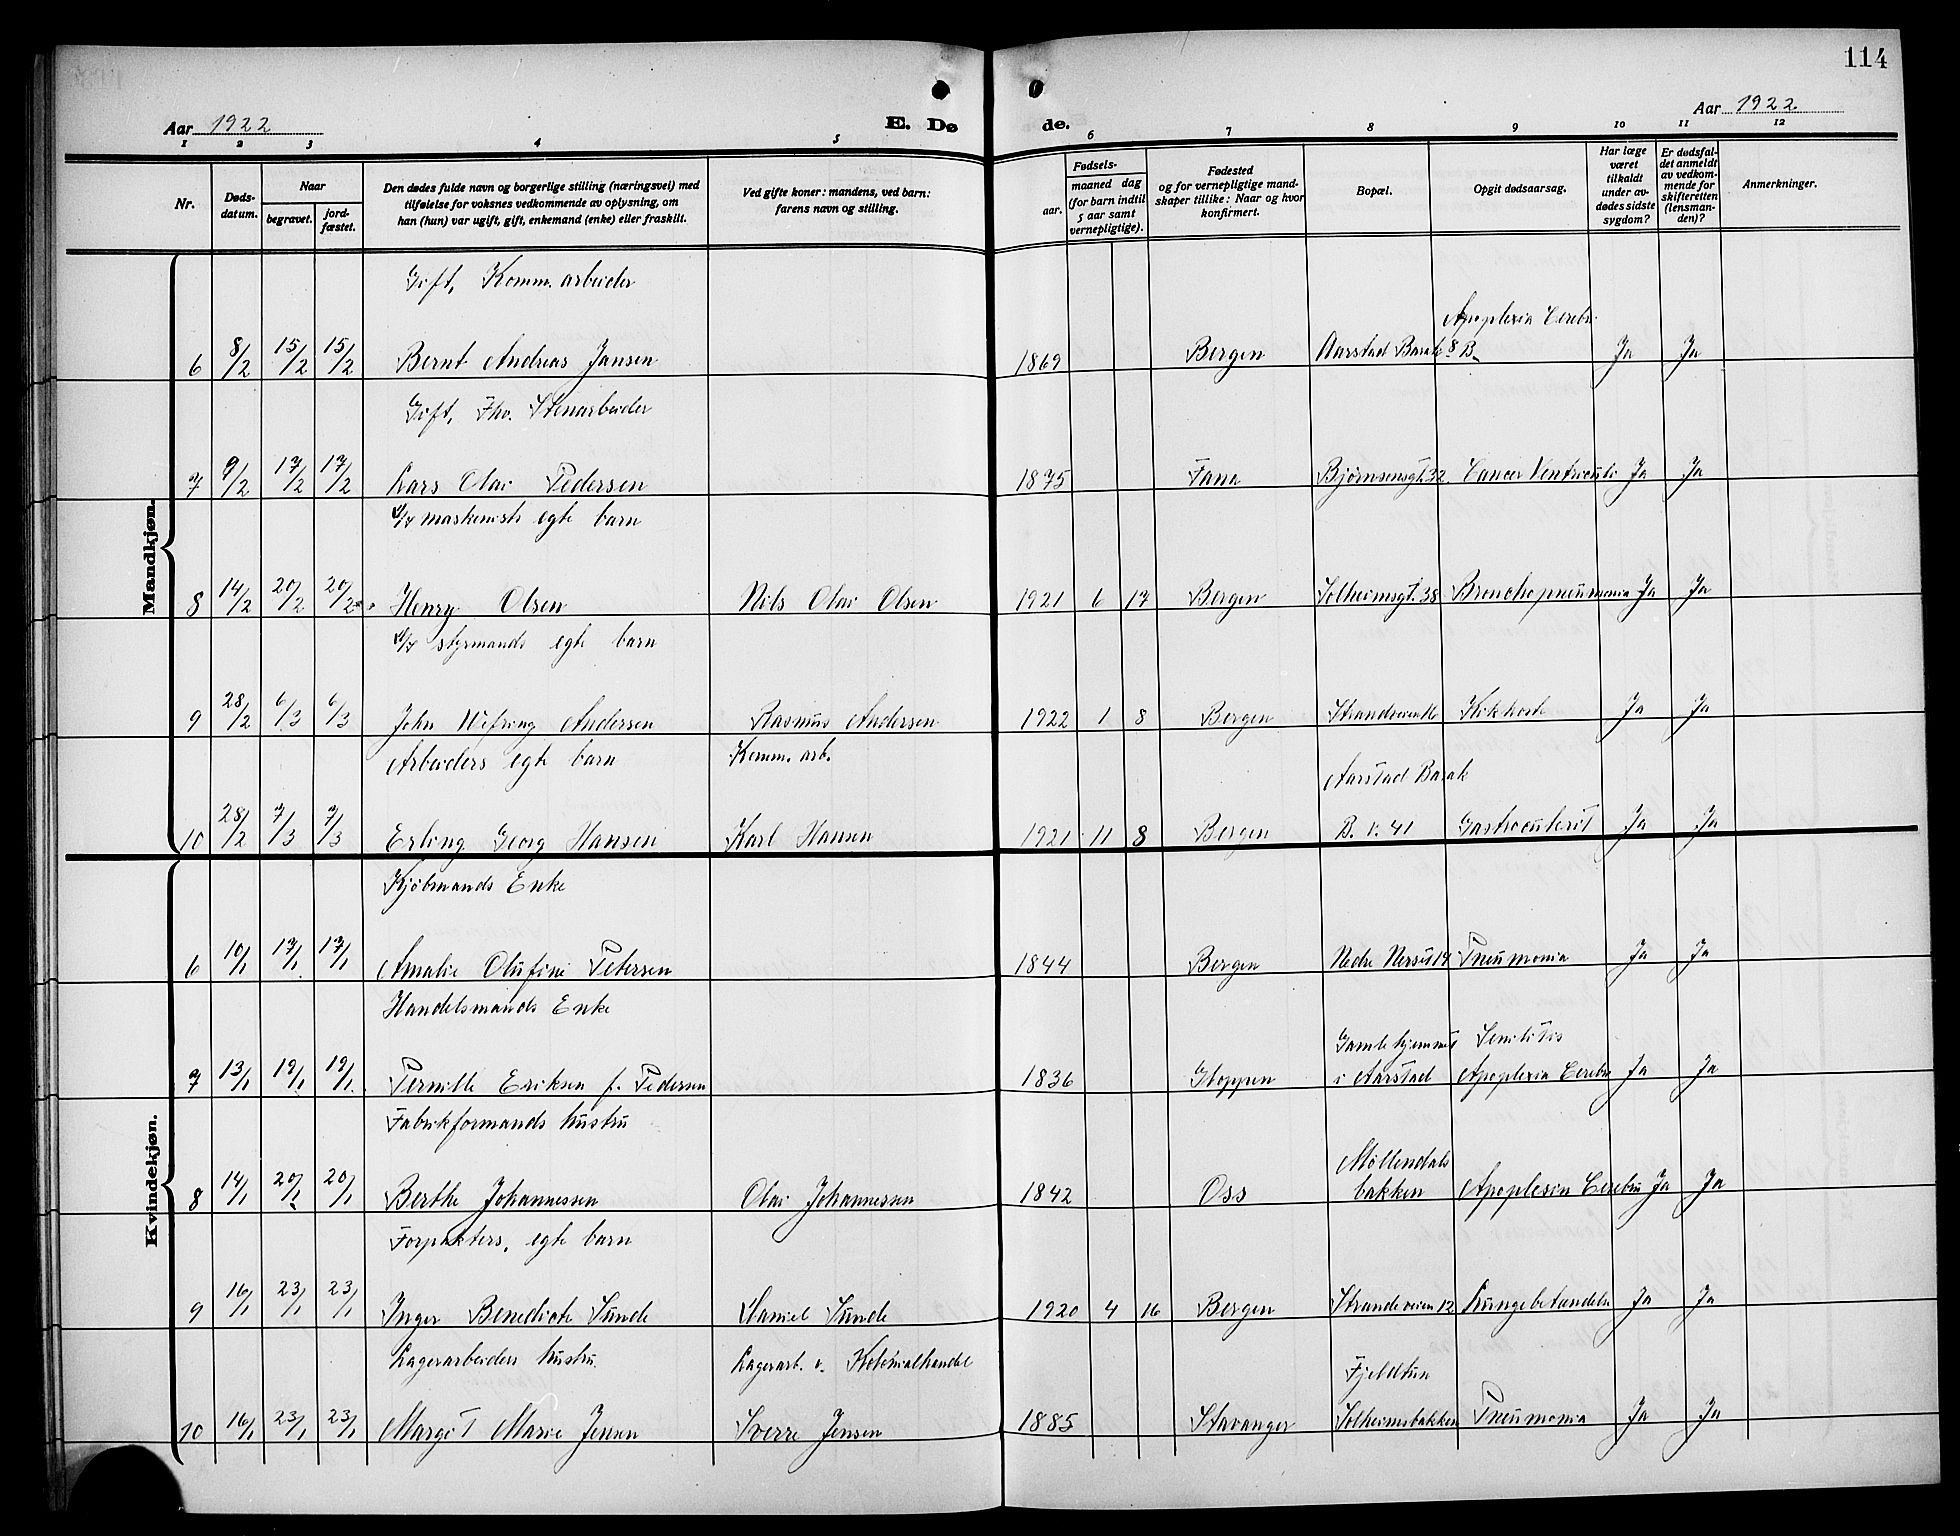 114
Aar 1922
E. Dø
de.
Aar 1922
1 2 3 4 5 6 7 8 9 10 11 12
Nr.
Døds-
datum.
Naar
begravet.
jord-
fæstet.
Den dødes fulde navn og borgerlige stilling (næringsvei) med
tilføielse for voksnes vedkommende av oplysning, om
han (hun) var ugift, gift, enkemand (enke) eller fraskilt.
Ved gifte koner: mandens, ved barn:
farens navn og stilling.
Fødsels-
aar.
maaned dag
(for barn indtil
5 aar samt
vernepligtige).
Fødested
og for vernepligtige mand-
skaper tillike: Naar og hvor
konfirmert.
Bopæl.
Opgit dødsaarsag.
Har læge
været
tilkaldt
under av-
dødes sidste
sygdom?
Er dødsfal-
det anmeldt
av vedkom-
mende for
skifteretten
(lensman-
den)?
Anmerkninger.
Mandkjøn.
Gift, Komm. arbeider
Apoplexia Cerebri
6 8/2 15/2 15/2 Bernt Andreas Jansen 1869 Bergen Aarstad Barak 8 B. Ja Ja
Gift, Fhv. Stenarbeider
7 9/2 17/2 17/2 Lars Olai Pedersen 1875 Fana Bjørnsensgt. 32 Cancer Ventriculi Ja Ja
maskinists egte barn
8 14/2 20/2 20/2 Henry Olsen Nils Olai Olsen 1921 6 17 Bergen Solheimsgt. 38 Bronchopneumonia Ja Ja
styrmands egte barn
9 28/2 6/3 6/3 John Andersen Rasmus Andersen 1922 1 8 Bergen Strandveien Kikhoste Ja Ja
Arbeiders egte barn Komm. arb.
Aarstad Barak
10 28/2 7/3 7/3 Erling Georg Hansen Karl Hansen 1921 11 8 Bergen B. v. 41 Gastroenterit Ja Ja
Kvindekjøn.
Kjøbmands Enke
6 10/1 17/1 17/1 Amalie Olufine Petersen 1844 Bergen Nedre 14 Pneumonia Ja Ja
Handelsmands Enke
Gamlehjemmet Senilitis
7 13/1 19/1 19/1 Pernille Eriksen f. Pedersen 1836 Gloppen i Aarstad Apoplexia Cerebri Ja Ja
Fabrikformands hustru
Møllendals
8 14/1 20/1 20/1 Berthe Johannessen Olai Johannessen 1842 Oss bakken Apoplexia Cerebri Ja Ja
Forpakters, egte barn
9 16/1 23/1 23/1 Inger Benedicte Sunde Daniel Sunde 1920 4 16 Bergen Strandeveien 12 Lungebetændelse Ja Ja
Lagerarbeiders hustru. Lagerarb. v. Kolonialhandel
Fjeldtun
10 16/1 23/1 23/1 Margit Marie Jensen Sverre Jensen 1885 Stavanger Solheimsbakken Pneumonia Ja Ja